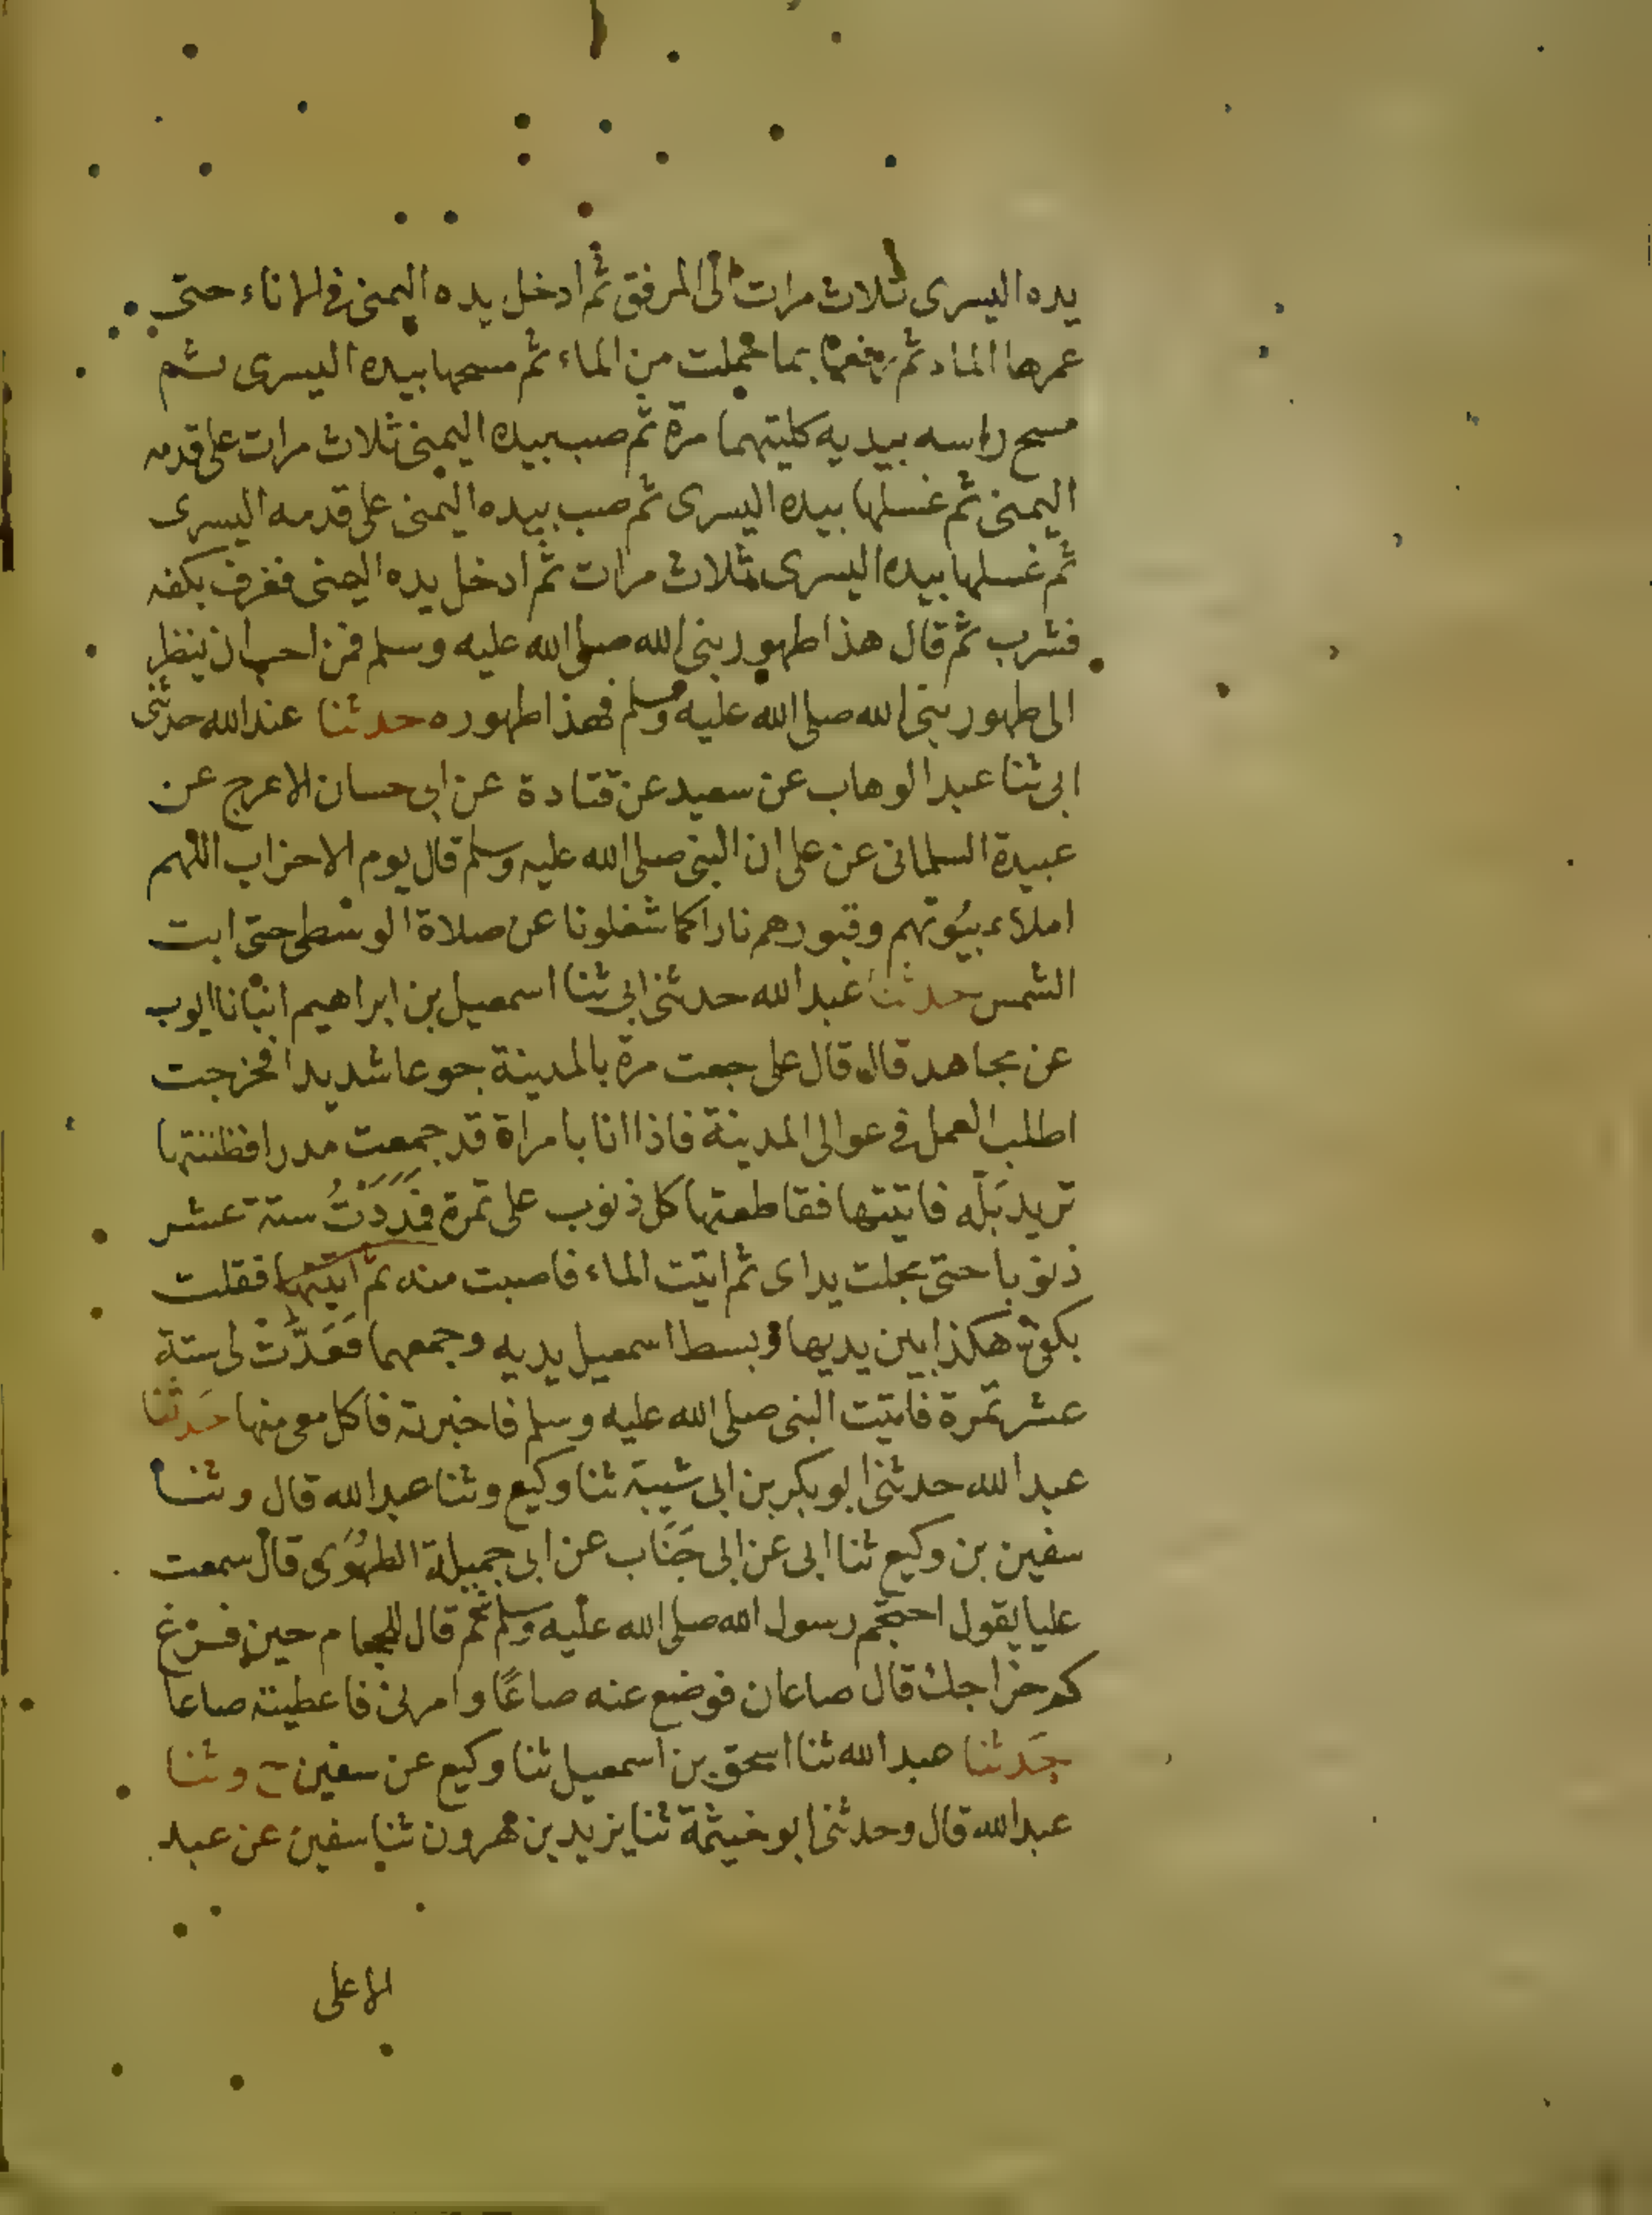 يده اليسرى ثلاث مرات الى المرفق ثم ادخل يده اليمنى في الاناء حتى
غمرها الماء ثم رفعها بما حملت من الماء ثم مسحها بيده اليسرى ثم
مسح راسه بيديه كلتيهما مرة ثم صب بيده اليمنى ثلاث مرات على قدمه
اليمنى ثم غسلها بيده اليسرى ثم صب بيده اليمنى على قدمه اليسرى
ثم غسلها بيده اليسرى ثلاث مرات ثم ادخل يده اليمنى فغرف بكفه
فشرب ثم قال هذا طهور نبي الله صلى الله عليه وسلم فمن احب ان ينظر
الى طهور نبي الله صلى الله عليه وسلم فهذا طهوره حدثنا عبد الله حدثني
ابى ثنا عبد الوهاب عن سعيد عن قتادة عن ابى حسان الاعرج عن
عبيدة السلمانى عن على ان النبي صلى الله عليه وسلم قال يوم الاحزاب اللهم
املاء بيُوتهم وقبورهم نارا كما شغلونا عن صلاة الوسطى حتى ابت
الشمس حدثنا عبد الله حدثنى ابى ثنا اسمعيل بن ابراهيم انبانا ايوب
عن مجاهد قال قال على جعت مرة بالمدينة جوعا شديدا فخرجت
اطلب العمل في عوالى المدينة فاذا انا بامراة قد جمعت مدرا فظننتها
تريد بَلّه فاتيتها فقاطعتها كل ذنوب على تمرة فمَدَدْتُ ستة عشر
ذنوبا حتى مجلت يداى ثم اتيت الماء فاصبت منه ثم اتيتها فقلت
بكفى هكذا بين يديها وبسط اسمعيل يديه وجمعهما فَعَدَّتْ لى ستة
عشر تمرة فاتيت النبي صلى الله عليه وسلم فاخبرته فاكل معى منها حَدثنا
عبد الله حدثنى ابو بكر بن ابى شيبة ثنا وكيع وثنا عبد الله قال وثنا
سفين بن وكيع ثنا ابى عن ابى جَنَاب عن ابى جميلة الطهُوَى قال سمعت
عليا يقول احتجم رسول الله صلى الله عليه وسلم ثم قال للحجام حين فرغ
كم خراجك قال صاعان فوضع عنه صاعًا وامرنى فاعطيته صاعا
حَدثنا عبد الله ثنا اسحق بن اسمعيل ثنا وكيع عن سفين ح وثنا
عبد الله قال وحدثنى ابو خيثمة ثنا يزيد بن هرون ثنا سفين عن عبد
الاعلى